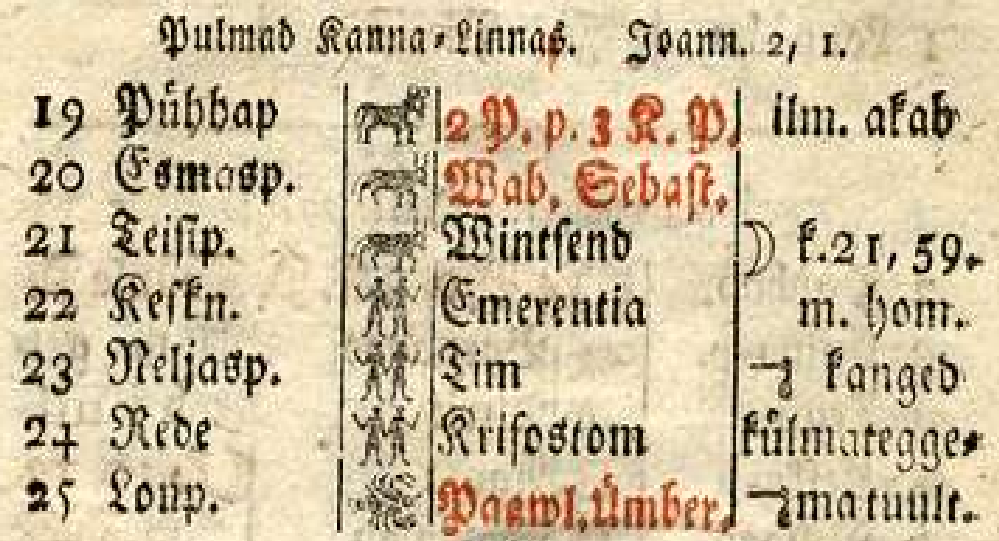 Pulmad Kanna-Linnas. Joann. 2, 1.
19 Pühhap 2 P. p. 3 K. P. ilm. akab
20 Esmasp. Wab. Sebast.
21 Teisip. Wintsend ☽ k. 21, 59.
22 Keskn. Emerentia m. hom.
23 Neljasp. Tim kanged
24 Rede Krisostom külmaregge-
25 Loup. Paawl. Ümber. ma tuult.